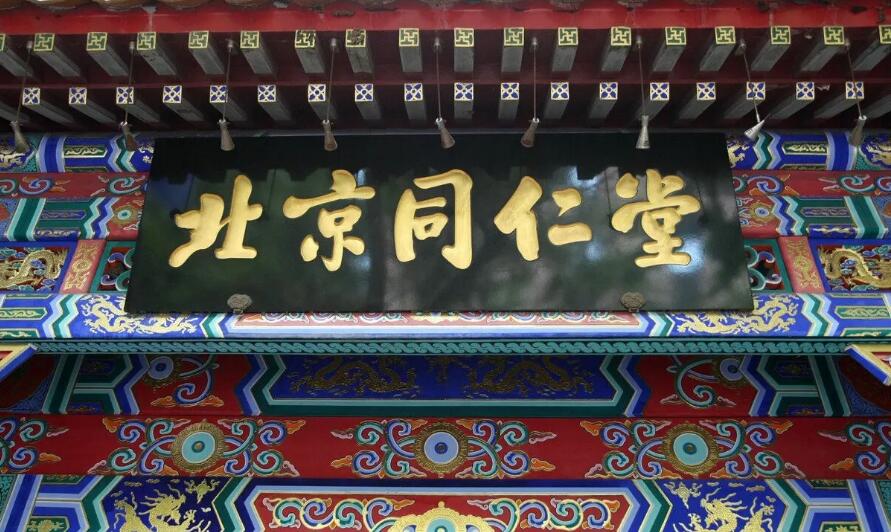 北京同仁堂